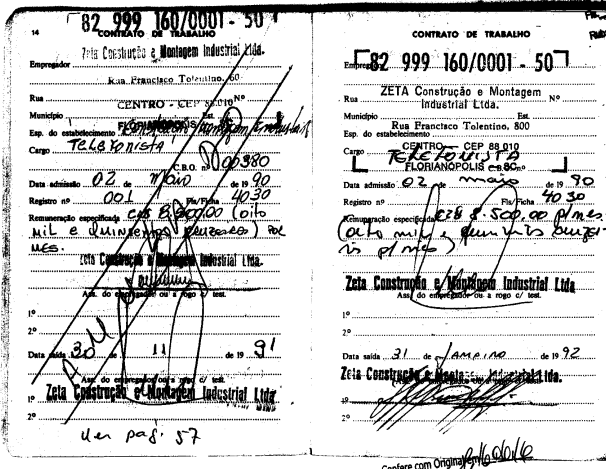 14
CONTRATO DE TRABALHO
82 999 160/0001 - 50
Zeta Construção e Montagem Industrial Ltda.
Empregador
Rua Francisco Tolentino, 60
Rua Nº
CENTRO - CEP 88.010
Município Est.
FLORIANÓPOLIS
Esp. do estabelecimento
Cargo TELEFONISTA
C.B.O. nº 00380
Data admissão 02 de MAIO de 19 90
Registro nº 001 Fls/Ficha 4030
Remuneração especificada CR$ 8.500,00 (Oito
MIL e QUINHENTOS CRUZEIROS) POR
MES.
Zeta Construção e Montagem Industrial Ltda.
Ass. do empregador ou a rogo c/ test.
1º
2º
Data saída 30 de 11 de 19 91
Ass. do empregador ou a rogo c/ test.
1º Zeta Construção e Montagem Industrial Ltda
2º
Ver pag. 57
CONTRATO DE TRABALHO
82 999 160/0001 - 50
Empregador
ZETA Construção e Montagem
Industrial Ltda.
Rua Nº
Município Est.
Rua Francisco Tolentino, 800
Esp. do estabelecimento
CENTRO - CEP 88 010
Cargo TELEFONISTA
FLORIANÓPOLIS - SC
Data admissão 02 de maio de 19 90
Registro nº Fls/Ficha 4030
Remuneração especificada CR$ 8.500,00 p/mes.
(oito mil e quinhentos cruzei-
ros p/mes)
Zeta Construção e Montagem Industrial Ltda
Ass. do empregador ou a rogo c/ test.
1º
2º
Data saída 31 de JANEIRO de 19 92
Zeta Construção e Montagem Industrial Ltda.
1º
2º
Confere com Original em